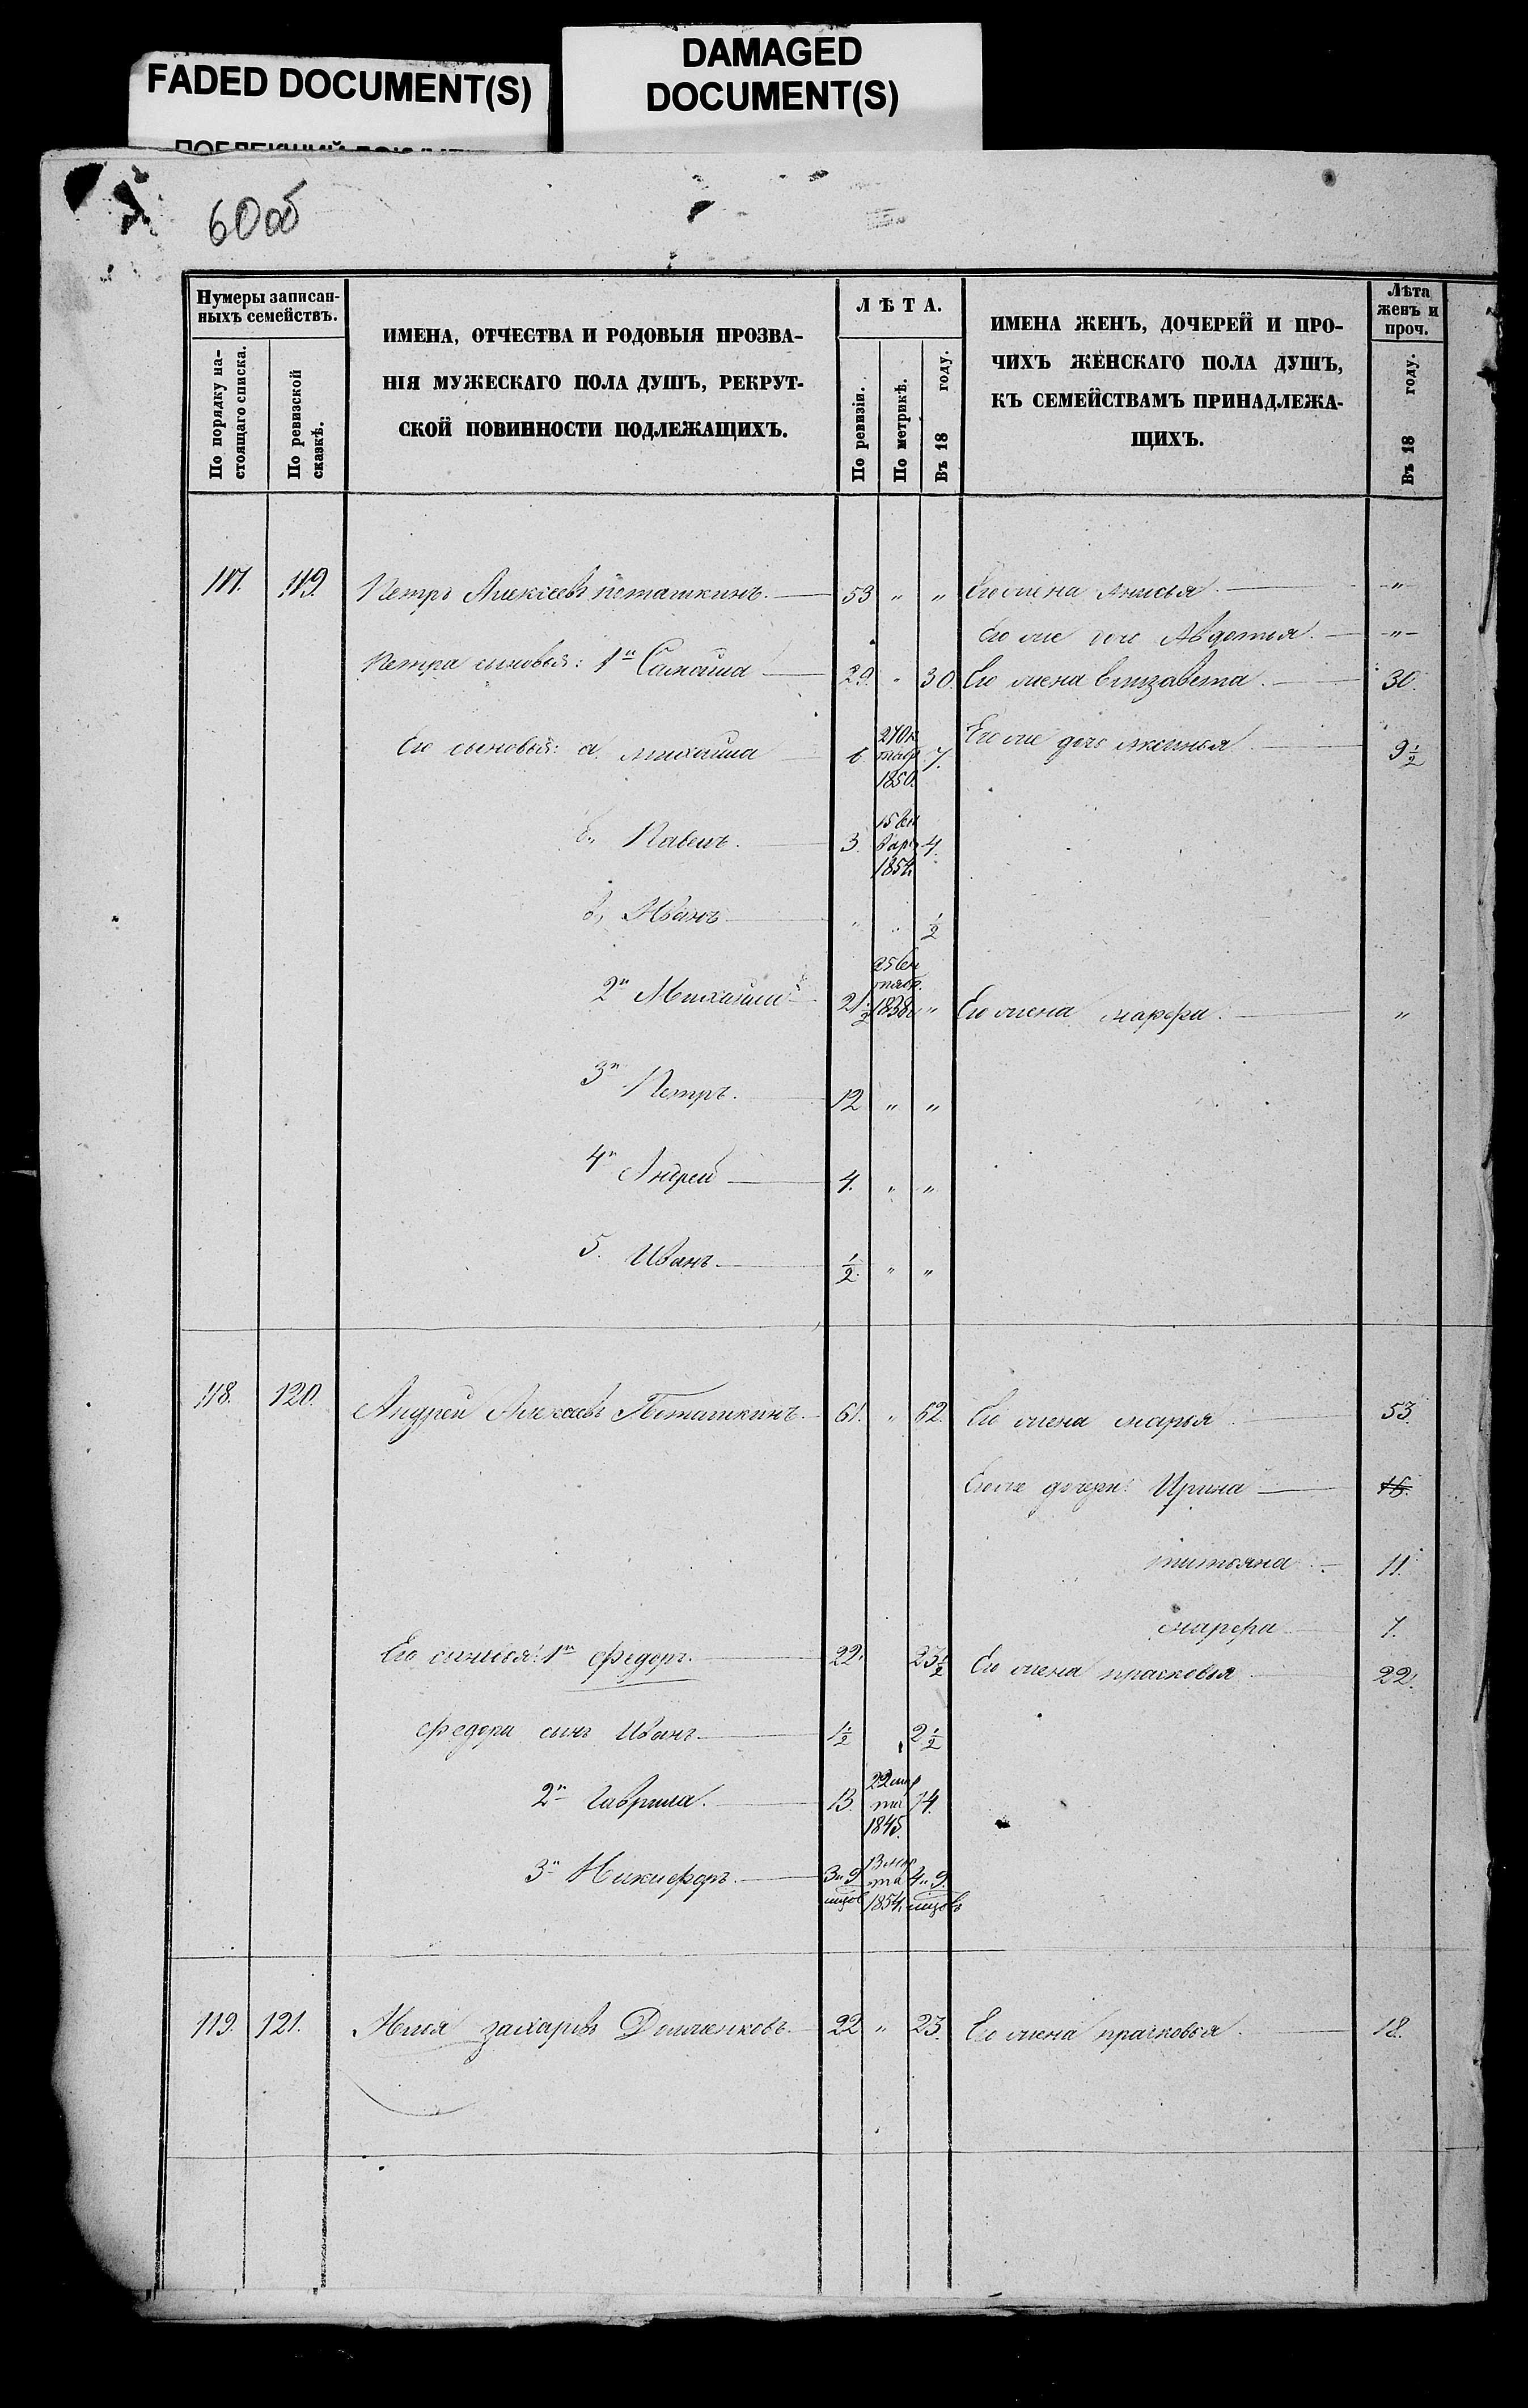 FADED DOCUMENT(S)
DAMAGED
DOCUMENT(S)
60об
Нумеры записан-
ныхъ семействъ.
По порядку на-
стоящаго списка.
По ревизской
сказкѣ.
ИМЕНА, ОТЧЕСТВА И РОДОВЫЯ ПРОЗВА-
НІЯ МУЖЕСКАГО ПОЛА ДУШЪ, РЕКРУТ-
СКОЙ ПОВИННОСТИ ПОДЛЕЖАЩИХЪ.
ЛѢТА.
По ревизіи.
По метрикѣ.
Въ 18 году.
ИМЕНА ЖЕНЪ, ДОЧЕРЕЙ И ПРО-
ЧИХЪ ЖЕНСКАГО ПОЛА ДУШЪ,
КЪ СЕМЕЙСТВАМЪ ПРИНАДЛЕЖА-
ЩИХЪ.
Лѣта
женъ и
проч.
Въ 18 году.
117. 119. Петръ Алексеевъ Поташкинъ. 53 " " Его жена Анисья. "
Его же дочь Авдотья. "
Петра сыновья: 1й Самойла 29. " 30. Его жена Елизавета. 30.
Его сыновья: а. Михайла 6 1850. 7. Его же дочь 9½
б, Павелъ. 3. 1854. 4.
в, Иванъ " " ½
2й Михайла 21½ 1838 " Его жена Марфа. "
3й Петръ. 12 " "
4й Андрей 4. " "
5. Иванъ ½ " "
118. 120. Андрей Алексеевъ Поташкинъ. 61. " 62. Его жена Марья. 53.
Его же дочери: Ирина 16.
Титьяна 11.
Марфа 7.
Его сыновья: 1й Федоръ. 22. 23½ Его жена Прасковья 22.
Федора сынъ Иванъ 1½ 2½
2й Гаврила. 13. 22 мар
та
1845. 14.
3й Никифоръ. 3 " 9 13 мар
та
1854. 4 " 9.
119. 121. Илья Захаровъ 22 " 23. Его жена Прасковья. 18.